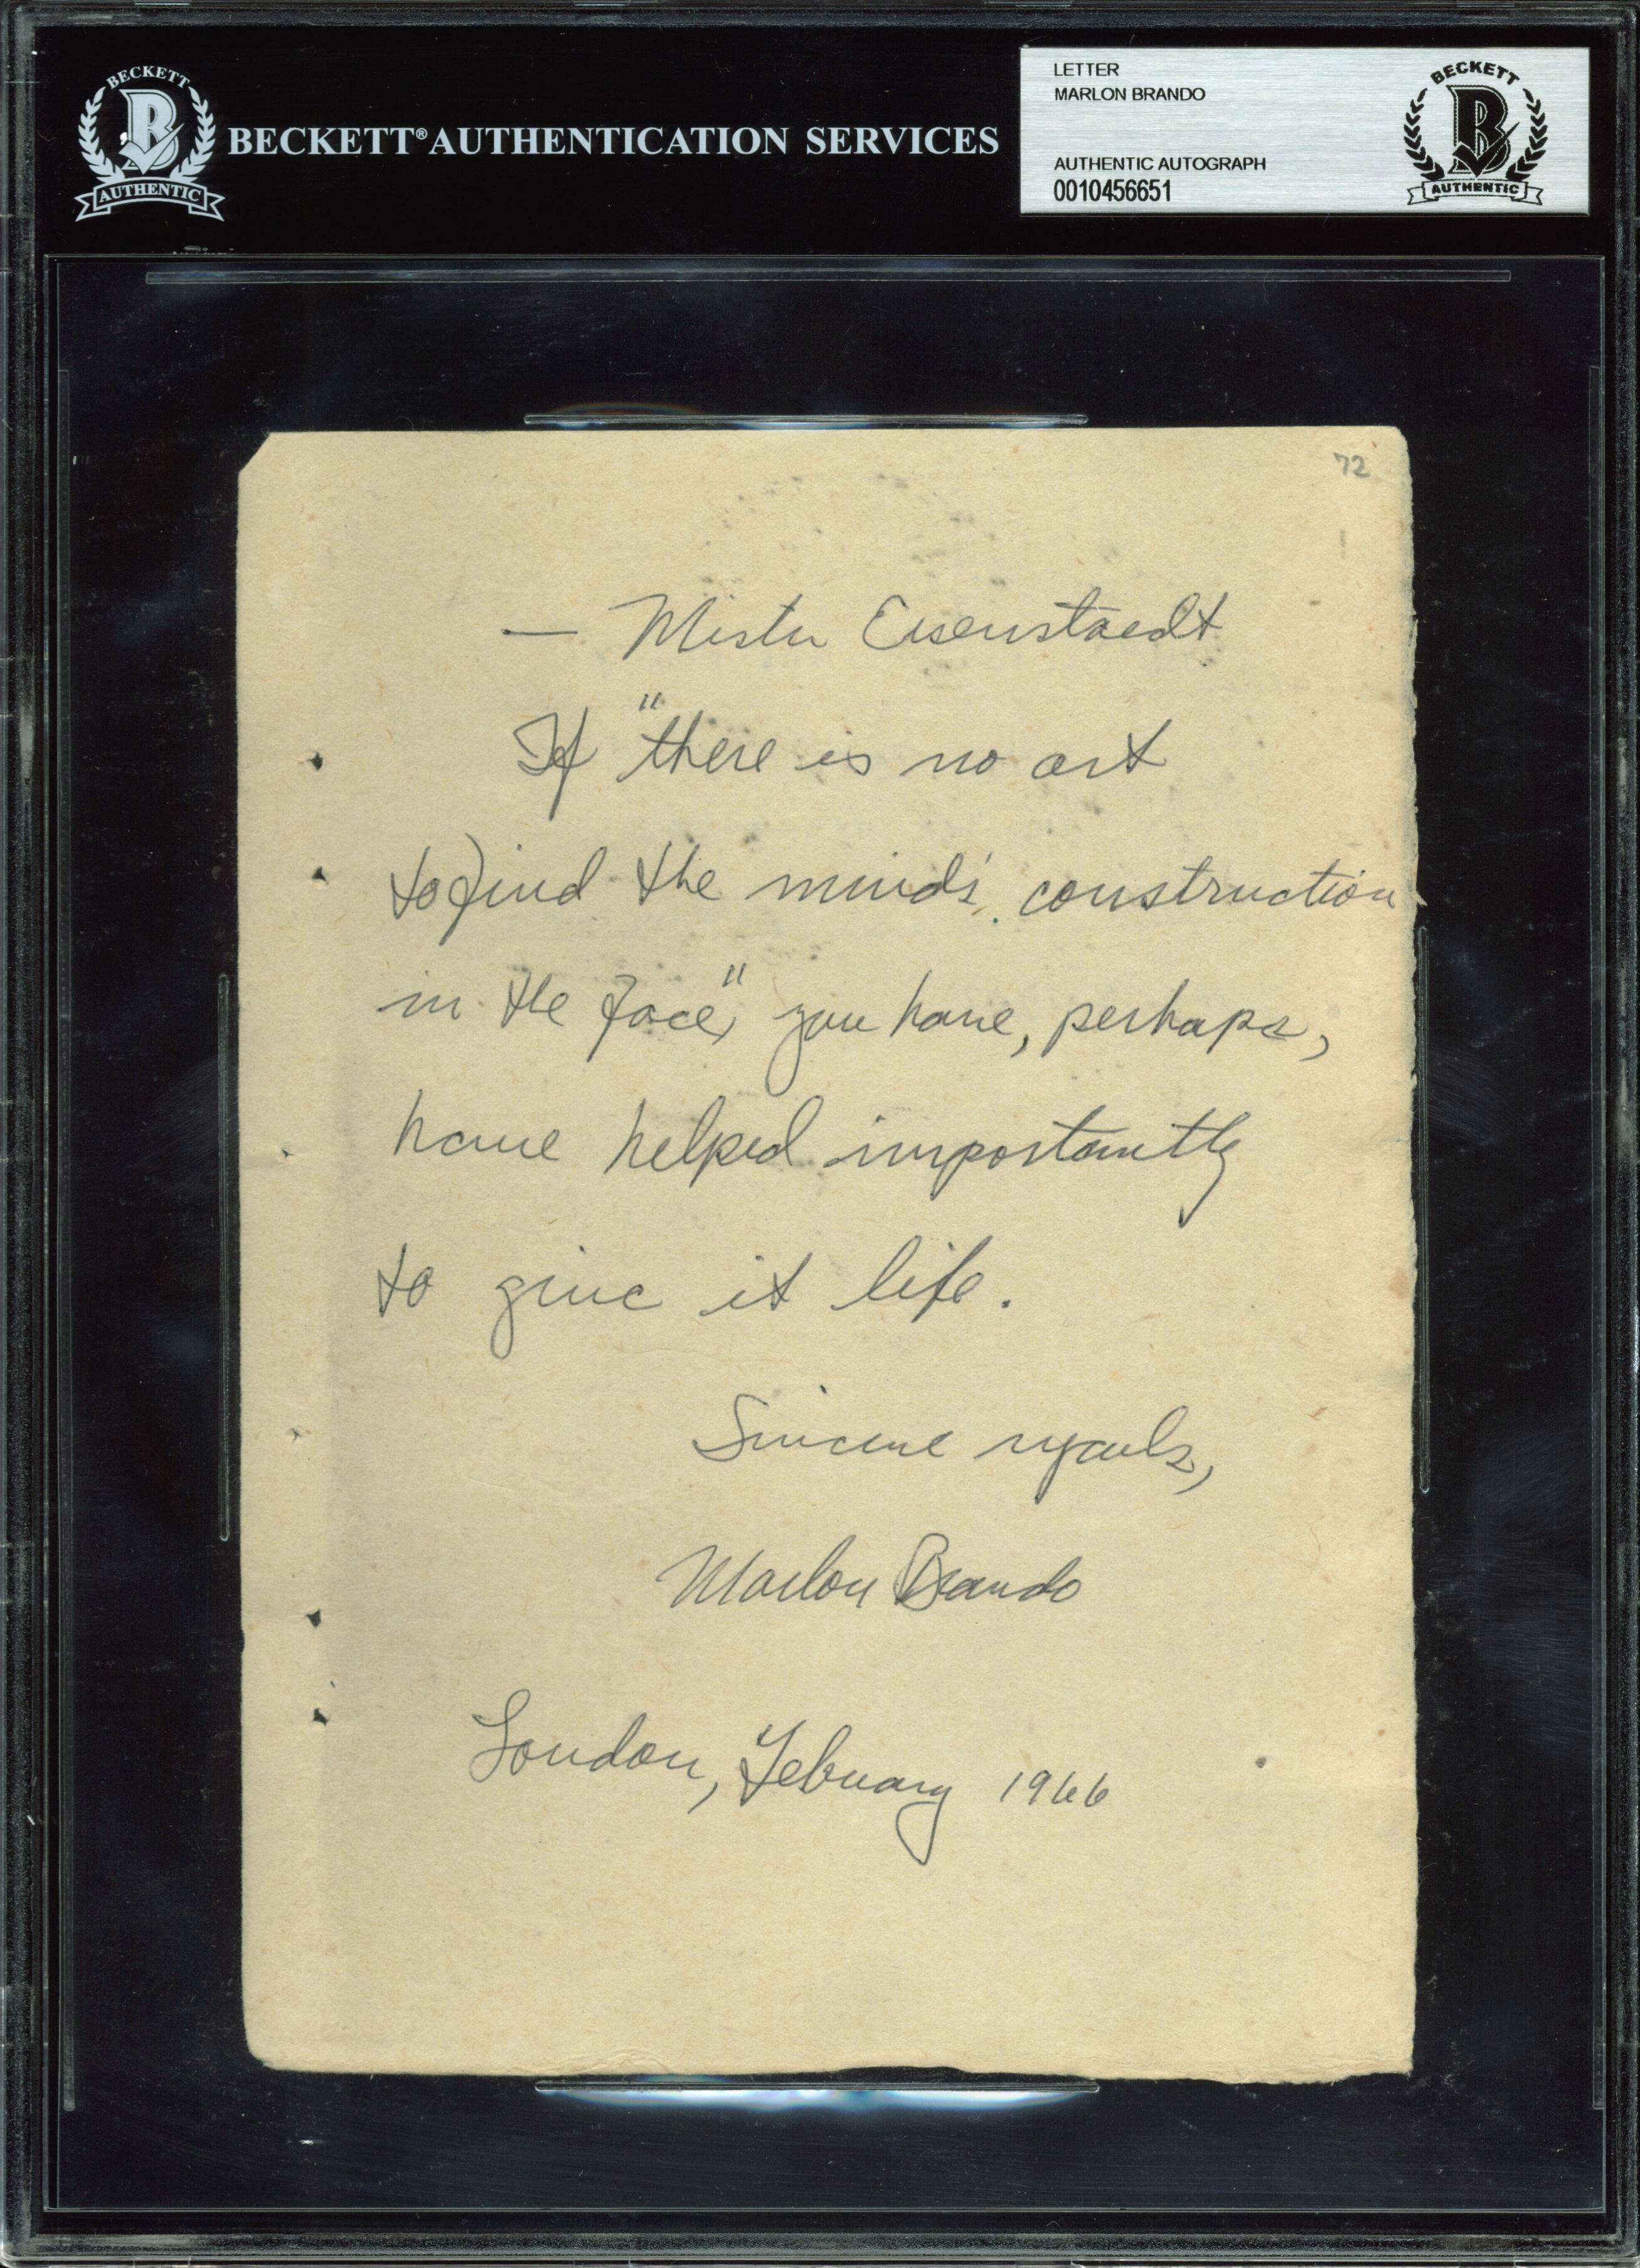 BECKETT
B
AUTHENTIC
BECKETT® AUTHENTICATION SERVICES
LETTER
MARLON BRANDO
AUTHENTIC AUTOGRAPH
0010456651
BECKETT
B
AUTHENTIC
72
— Mister Eisenstaedt
If "there is no art
to find the mind's construction
in the face," you have, perhaps,
have helped importantly
to give it life.
Sincere regards,
Marlon Brando
London, February 1966